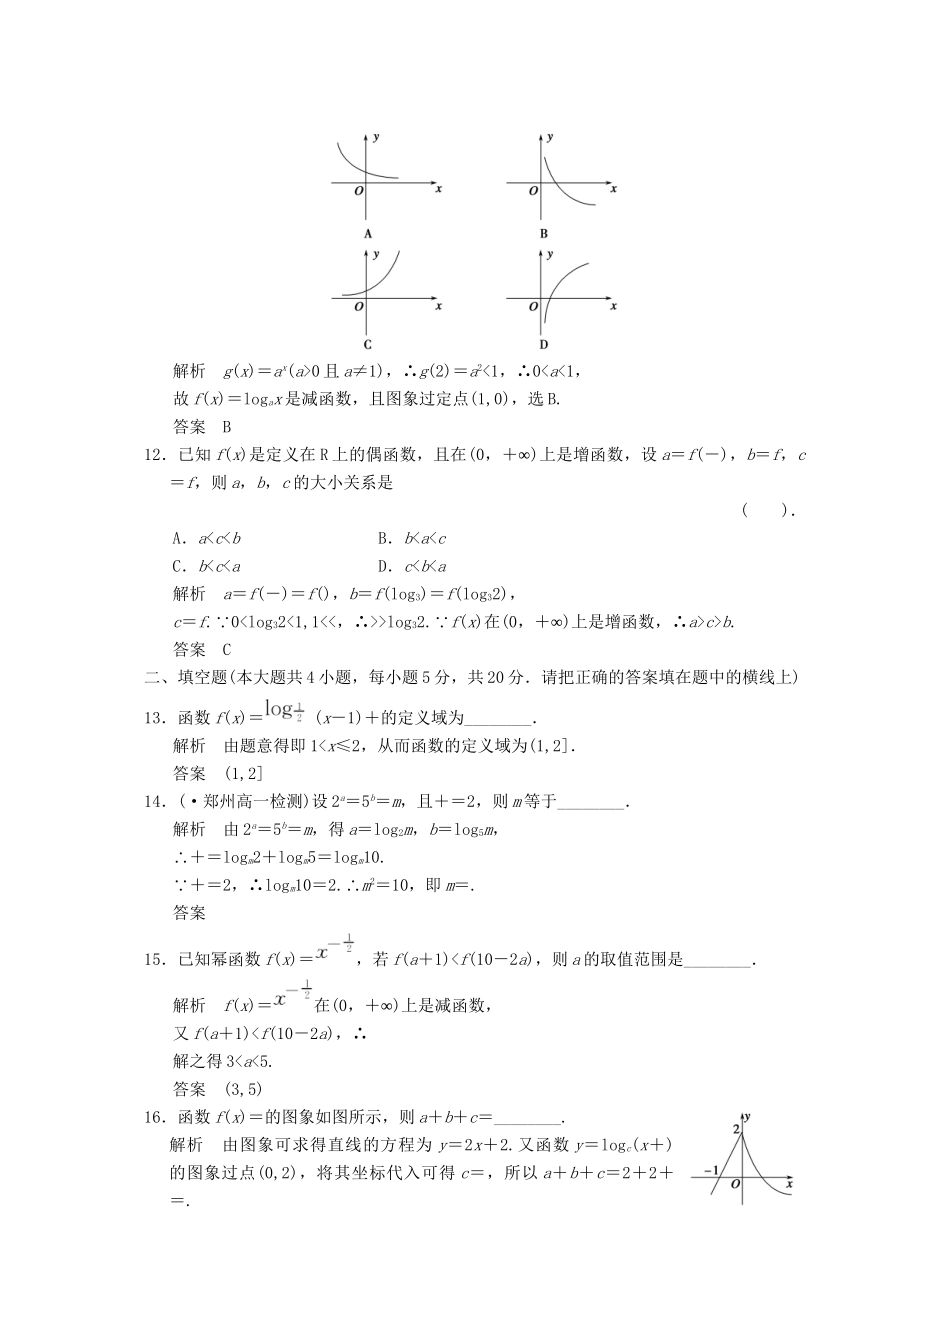 y
y
O
x
O
x
A
B
y
y
O
x
O
x
C
D
解析 g(x)=aˣ(a>0且a≠1),∴g(2)=a²<1,∴0<a<1,
故f(x)=logₐx是减函数,且图象过定点(1,0),选B.
答案 B
12.已知f(x)是定义在R上的偶函数,且在(0,+∞)上是增函数,设a=f(-),b=f,c
=f,则a,b,c的大小关系是
( ).
A.a<c<b B.b<a<c
C.b<c<a D.c<b<a
解析 a=f(-)=f(),b=f(log₃)=f(log₃2),
c=f.∵0<log₃2<1,1<<,∴>>log₃2.∵f(x)在(0,+∞)上是增函数,∴a>c>b.
答案 C
二、填空题(本大题共4小题,每小题5分,共20分.请把正确的答案填在题中的横线上)
13.函数f(x)=log½ (x-1)+的定义域为________.
解析 由题意得即1<x≤2,从而函数的定义域为(1,2].
答案 (1,2]
14.(·郑州高一检测)设2ᵃ=5ᵇ=m,且+=2,则m等于________.
解析 由2ᵃ=5ᵇ=m,得a=log₂m,b=log₅m,
∴+=logₘ2+logₘ5=logₘ10.
∵+=2,∴logₘ10=2.∴m²=10,即m=.
答案
15.已知幂函数f(x)=x^(-1/2),若f(a+1)<f(10-2a),则a的取值范围是________.
解析 f(x)=x^(-1/2)在(0,+∞)上是减函数,
又f(a+1)<f(10-2a),∴
解之得3<a<5.
答案 (3,5)
16.函数f(x)=的图象如图所示,则a+b+c=________.
解析 由图象可求得直线的方程为y=2x+2.又函数y=log_c(x+)
的图象过点(0,2),将其坐标代入可得c=,所以a+b+c=2+2+
=.
y
2
-1
O
x